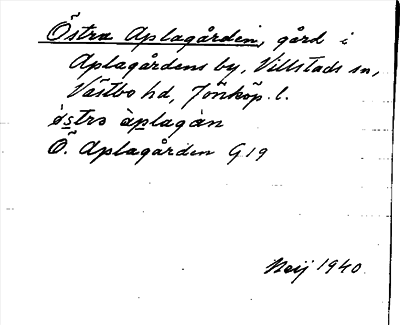 Östra Aplagården, gård i
Aplagårdens by, Villstads sn,
Västbo hd, Jönköp. l.
östra àplagàn
Ö. Aplagården G19
Neij 1940.